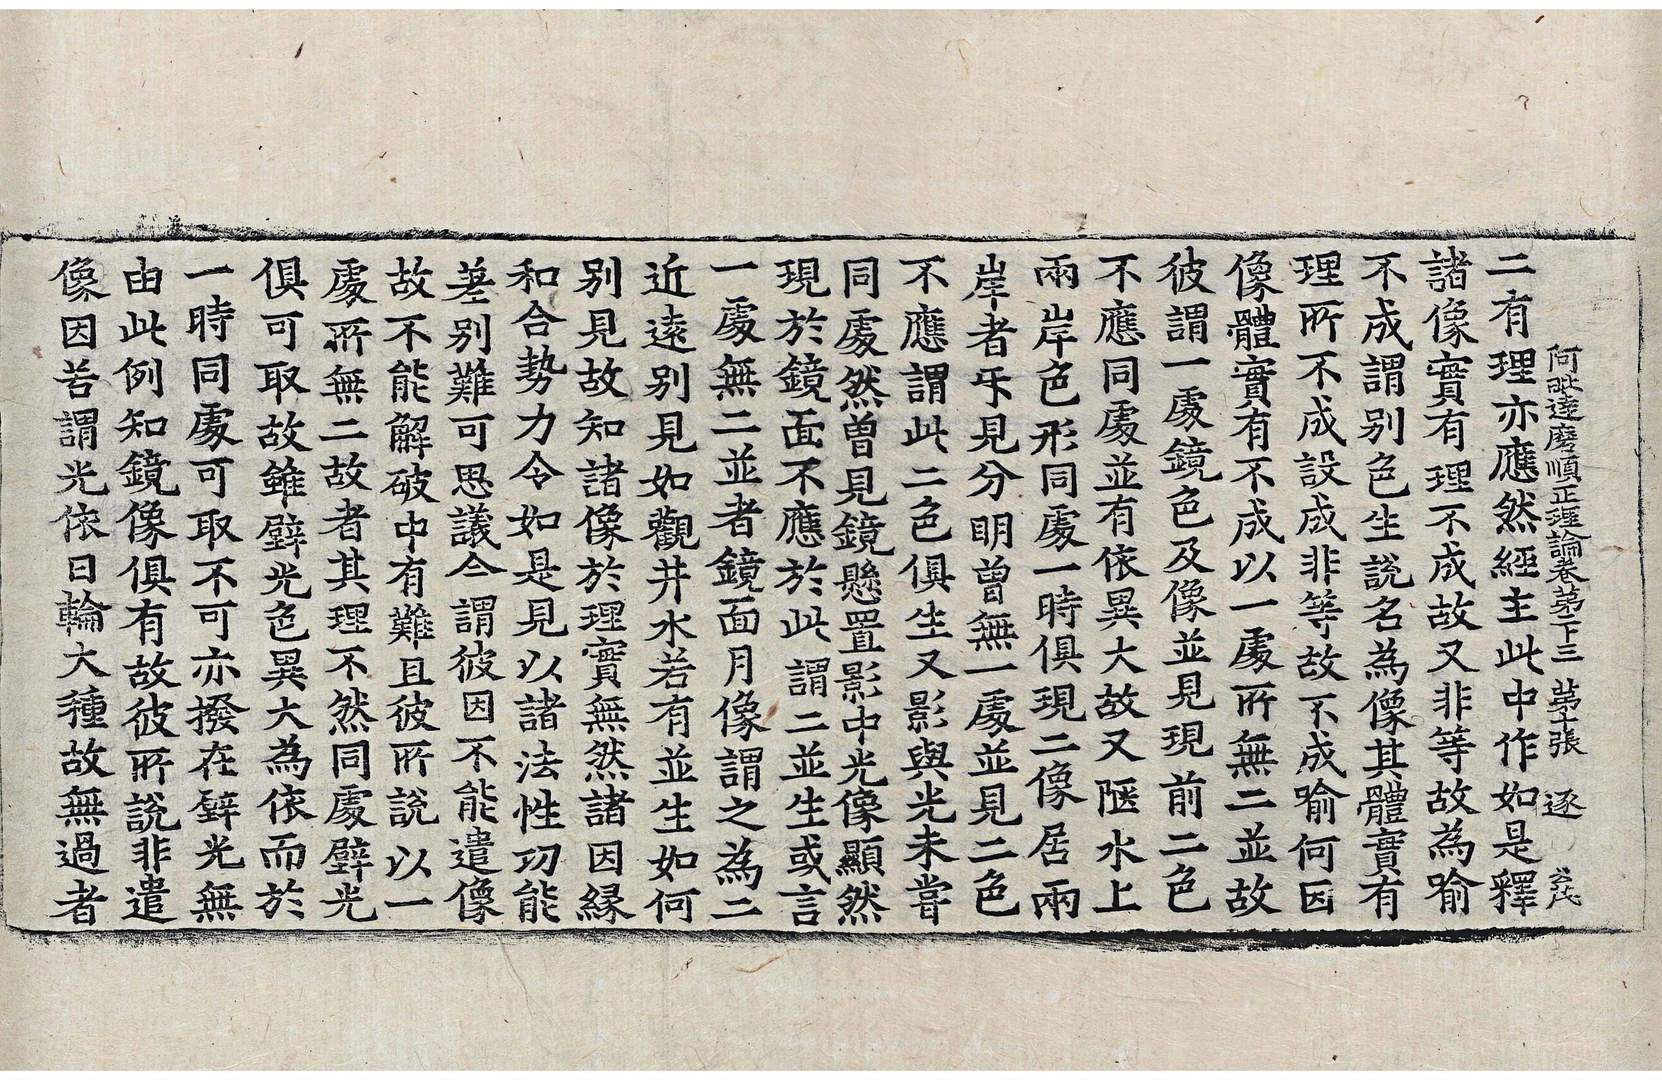 阿毗達磨順正理論卷第廿三 第十張 逐
二有理亦應然經主此中作如是釋
諸像實有理不成故又非等故為喻
不成謂別色生說名為像其體實有
理所不成設成非等故不成喻何因
像體實有不成以一處所無二並故
彼謂一處鏡色及像並見現前二色
不應同處並有依異大故又陿水上
兩岸色形同處一時俱現二像居兩
岸者㸦見分明曾無一處並見二色
不應謂此二色俱生又影與光未嘗
同處然曾見鏡懸置影中光像顯然
現於鏡面不應於此謂二並生或言
一處無二並者鏡面月像謂之為二
近遠別見如觀井水若有並生如何
別見故知諸像於理實無然諸因緣
和合勢力令如是見以諸法性功能
差別難可思議今謂彼因不能遣像
故不能解破中有難且彼所說以一
處所無二故者其理不然同處壁光
俱可取故雖壁光色異大為依而於
一時同處可取不可亦撥在壁光無
由此例知鏡像俱有故彼所說非遣
像因若謂光依日輪大種故無過者